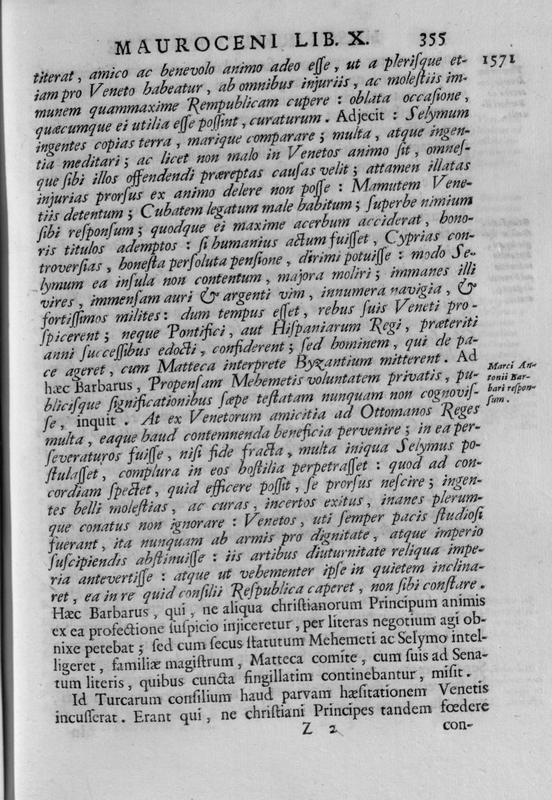 MAUROCENI LIB. X. 355
1571
titerat, amico ac benevolo animo adeo eſſe, ut a pleriſque et-
iam pro Veneto habeatur, ab omnibus injuriis, ac moleſtiis im-
munem quammaxime Rempublicam cupere : oblata occaſione,
quæcumque ei utilia eſſe poſſint, curaturum. Adjecit : Selymum
ingentes copias terra, marique comparare ; multa, atque ingen-
tia meditari ; ac licet non malo in Venetos animo ſit, omneſ-
que ſibi illos offendendi præreptas cauſas velit ; attamen illatas
injurias prorſus ex animo delere non poſſe : Mamutem Vene-
tiis detentum ; Cubatem legatum male habitum ; ſuperbe nimium
ſibi reſponſum ; quodque ei maxime acerbum acciderat, hono-
ris titulos ademptos : ſi humanius actum fuiſſet, Cyprias con-
troverſias, honeſta perſoluta penſione, dirimi potuiſſe : modo Se-
lymum ea inſula non contentum, majora moliri ; immanes illi
vires, immenſam auri & argenti vim, innumera navigia, &
fortiſſimos milites : dum tempus eſſet, rebus ſuis Veneti pro-
ſpicerent ; neque Pontifici, aut Hiſpaniarum Regi, præteriti
anni ſucceſſibus edocti, confiderent ; ſed hominem, qui de pa-
ce ageret, cum Matteca interprete Byzantium mitterent. Ad
hæc Barbarus, Propenſam Mehemetis voluntatem privatis, pu-
bliciſque ſignificationibus ſæpe teſtatam nunquam non cognoviſ-
ſe, inquit. At ex Venetorum amicitia ad Ottomanos Reges
multa, eaque haud contemnenda beneficia pervenire ; in ea per-
ſeveraturos fuiſſe, niſi fide fracta, multa iniqua Selymus po-
ſtulaſſet, complura in eos hoſtilia perpetraſſet : quod ad con-
cordiam ſpectet, quid efficere poſſit, ſe prorſus neſcire ; ingen-
tes belli moleſtias, ac curas, incertos exitus, inanes plerum-
que conatus non ignorare : Venetos, uti ſemper pacis ſtudioſi
fuerant, ita nunquam ab armis pro dignitate, atque imperio
ſuſcipiendis abſtinuiſſe : iis artibus diuturnitate reliqua impe-
ria anteverti­ſſe : atque ut vehementer ipſe in quietem inclina-
ret, ea in re quid conſilii Reſpublica caperet, non ſibi conſtare.
Hæc Barbarus, qui, ne aliqua chriſtianorum Principum animis
ex ea profectione ſuſpicio injiceretur, per literas negotium agi ob-
nixe petebat ; ſed cum ſecus ſtatutum Mehemeti ac Selymo intel-
ligeret, familiæ magiſtrum, Matteca comite, cum ſuis ad Sena-
tum literis, quibus cuncta ſingillatim continebantur, miſit.
Id Turcarum conſilium haud parvam hæſitationem Venetis
incuſſerat. Erant qui, ne chriſtiani Principes tandem fœdere
Z 2 con-
Marci An-
tonii Bar-
bari reſpon-
ſum.